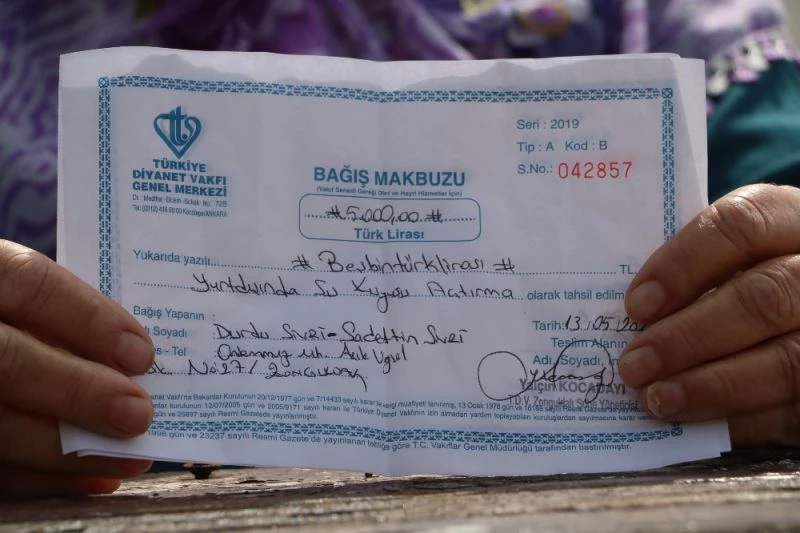 TÜRKİYE
DİYANET VAKFI
GENEL MERKEZİ
Dr. Mediha Eldem Sokak No: 72/B
Tel: (0312) 416 90 00 Kocatepe/ANKARA
Seri : 2019
Tip : A Kod : B
S.No.: 042857
BAĞIŞ MAKBUZU
(Vakıf Senedi Gereği Dini ve Hayri Hizmetler İçin)
#5.000,00 #
Türk Lirası
Yukarıda yazılı # Beşbintürklirası # TL
Yurtdışında Su Kuyusu Açtırma olarak tahsil edilm
Bağış Yapanın :
Adı Soyadı : Durdu SİVRİ-Sadettin SİVRİ
es - Tel : Ontemmuz mh.
No:27/ ZONGULDAK
Tarih: 13.05.20
Teslim Alanın
Adı, Soyadı, İm
Yalçın KOCABAYI
T.D.V. Zonguldak Şube Yöneticisi
Vakfı'na Bakanlar Kurulunun 20/12/1977 gün ve 7/14433 sayılı kararı ile vergi muafiyeti tanınmış, 13 Ocak 1978 gün ve 16168 sayılı Resmi Gazete'de
kurulunun 12/07/2005 gün ve 2005/9171 sayılı kararı ile Türkiye Diyanet Vakfının izin almadan yardım toplayabilen kuruluşlardan sayılmasına karar ver
gün ve 25897 sayılı Resmi Gazetede yayınlanmıştır.
1998 gün ve 23237 sayılı Resmi Gazete'de yayınlanan yönetmeliğe göre T.C. Vakıflar Genel Müdürlüğü tarafından bastırılmıştır.